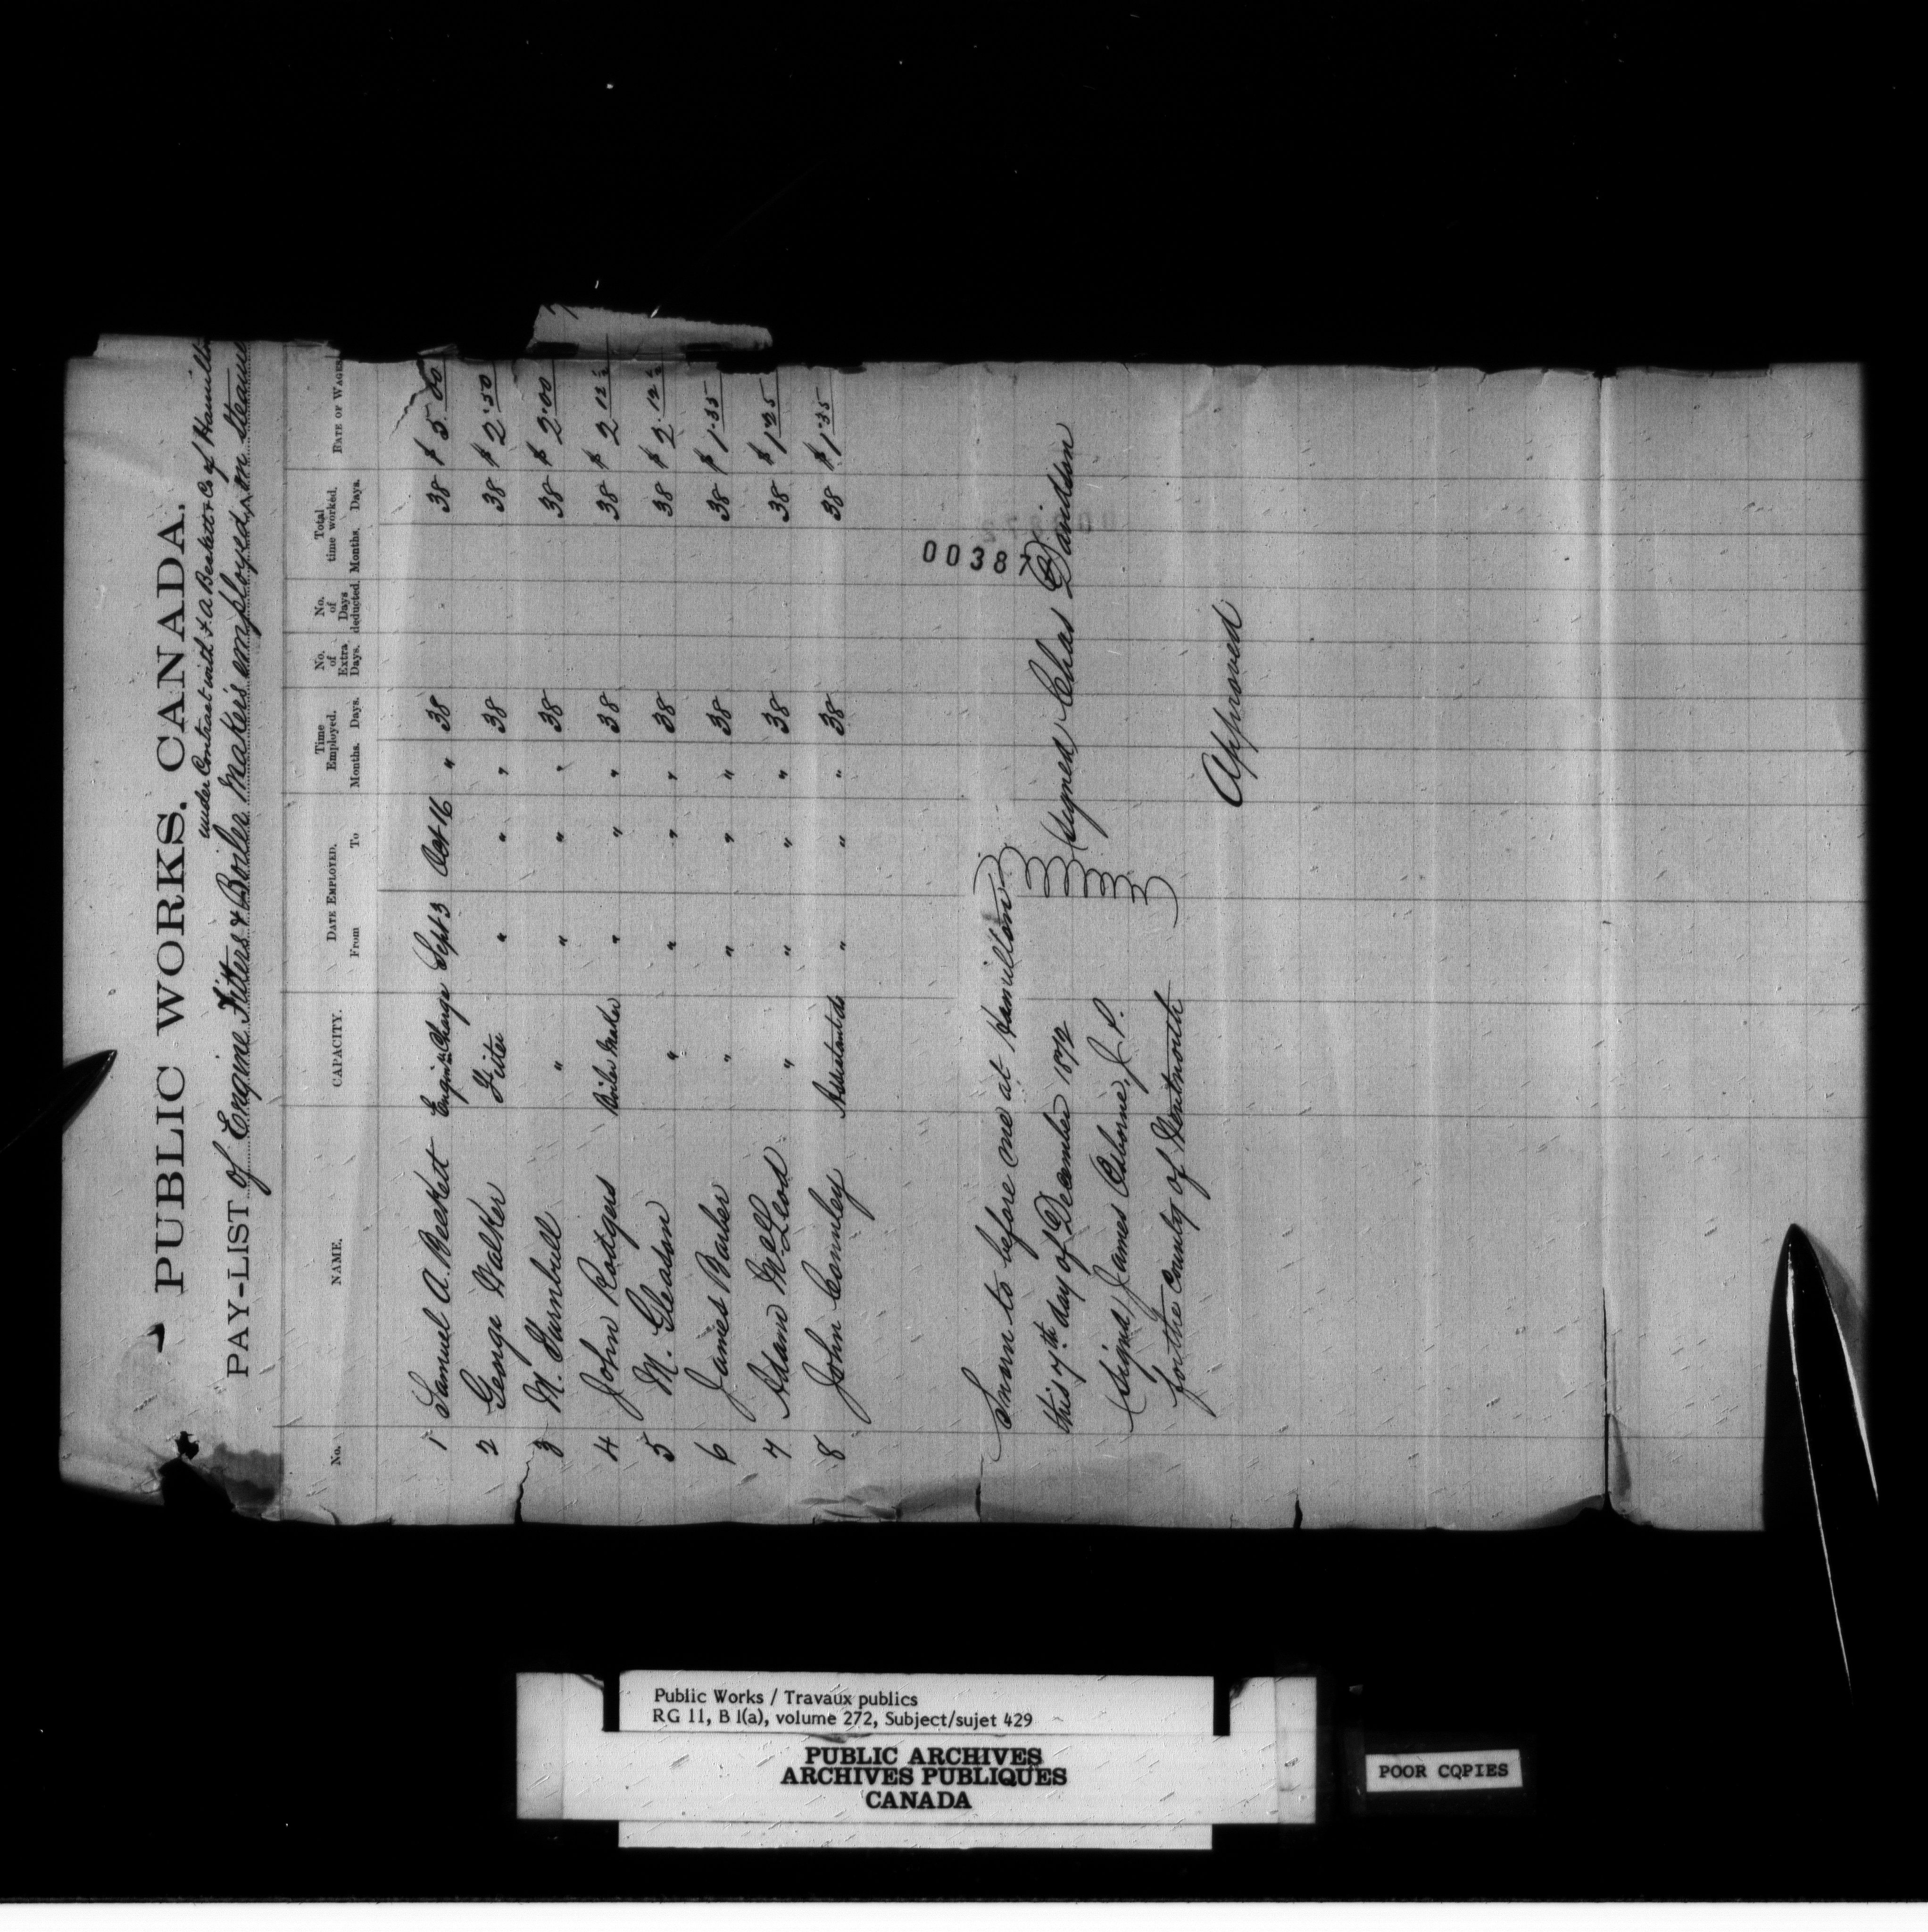 PUBLIC WORKS. CANADA.
under Contract with F. A Beckett & Co of Hamilton
PAY-LIST of Engine Fitters & Boiler Makers employed, on Steam
No. NAME. CAPACITY. DATE EMPLOYED. From To Time Employed. Months. Days. No. of Extra Days. No. of Days deducted. Total time worked. Months. Days. RATE OF WAGES
1 Samuel A. Beckett Engin in Charge Sept 3 Oct 16 " 38 38 $ 5.00
2 George Walker Fitter " " " 38 38 $ 2.50
3 M. Turnbull " " " " 38 38 $ 2.00
4 John Rodgers Boiler Maker " " " 38 38 $ 2 12 ½
5 M. Gleason " " " " 38 38 $ 2.12 ½
6 James Barber " " " " 38 38 $ 1.35
7 Adam McLeod " " " " 38 38 $ 1.25
8 John Connley Assistant do " " " 38 38 $ 1.35
00387
Sworn to before me at Hamilton
this 7th day of December 1872
(signed Chas Davidson
(Signd) James Osborne, J. P.
for the County of Wentworth
Approved
Public Works / Travaux publics
RG 11, B 1(a), volume 272, Subject/sujet 429
PUBLIC ARCHIVES
ARCHIVES PUBLIQUES
CANADA
POOR COPIES